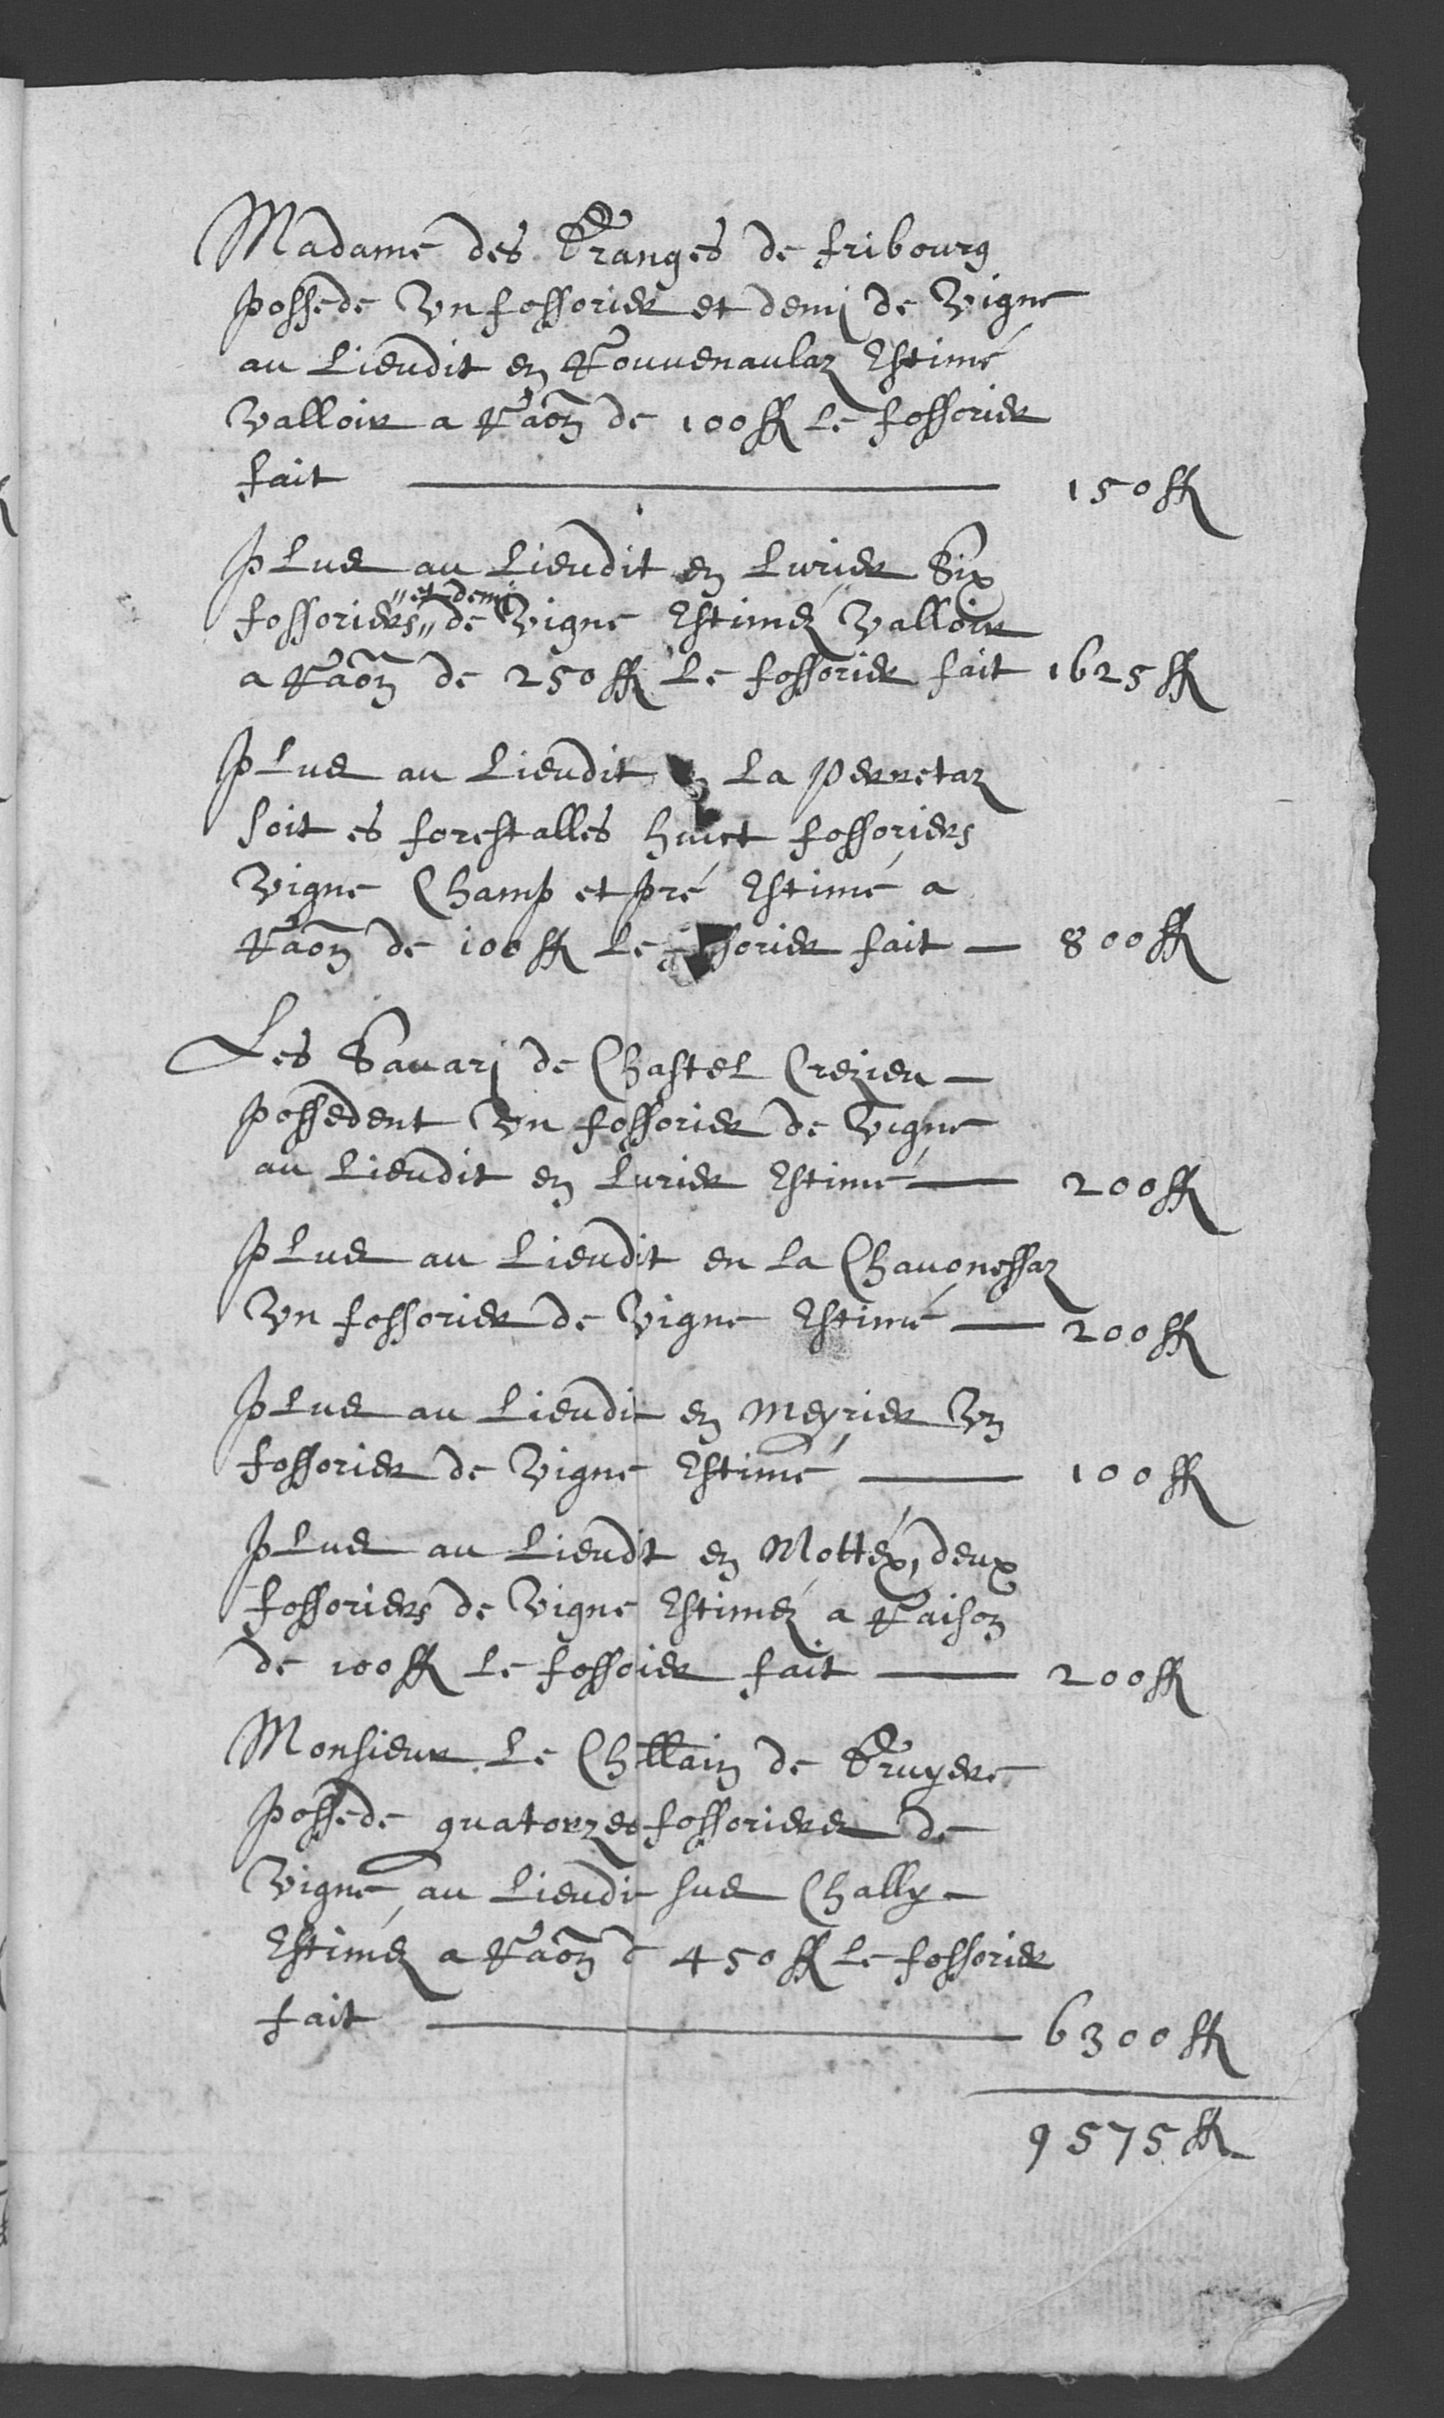 Madame des Granges de fribourg
possede Un fossorier et demi de Vigne
au Lieudit en Rouuenaulaz Estimé
Valloir a Raõn de 100 ff le fossorier
fait 150 ff
Plus au Lieudit en Lurier Six
fossoriers "et demi" de Vigne Estiméz Valloir
a Raõn de 250 ff le fossorier fait 1625 ff
Plus au Lieudit en La Perretaz
soit es forestalles huict fossoriers
Vigne Champ et pré Estimé a
Raõn de 100 ff le fossorier fait — 800 ff
Les Sauari de Chastel Crezieu —
possedent Un fossorier de Vigne
au Lieudit en Lurier Estimé — 200 ff
Plus au Lieudit en La Chauonessaz
Un fossorier de Vigne Estimé — 200 ff
Plus au Lieudit en Meyrier Un
fossorier de Vigne Estimé — 100 ff
Plus au Lieudit en Mottéx, deux
fossoriers de Vigne Estiméz a Raison
de 100 ff le fossoier fait — 200 ff
Monsieur Le Chllain de Gruyere
possede quatorze fossoriers de
Vigne, au Lieudit sus Chally —
Estiméz a Raõn d 450 ff le fossorier
fait 6300 ff
9575 ff